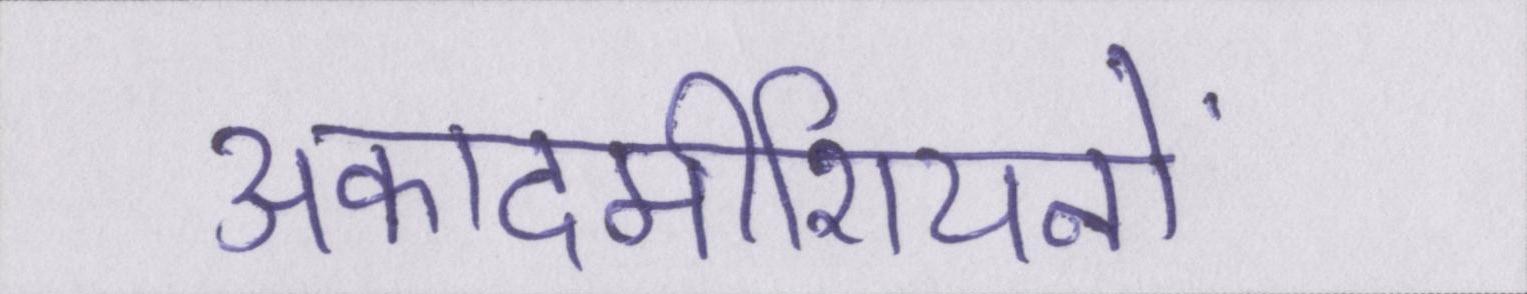 अकादमीशियनों